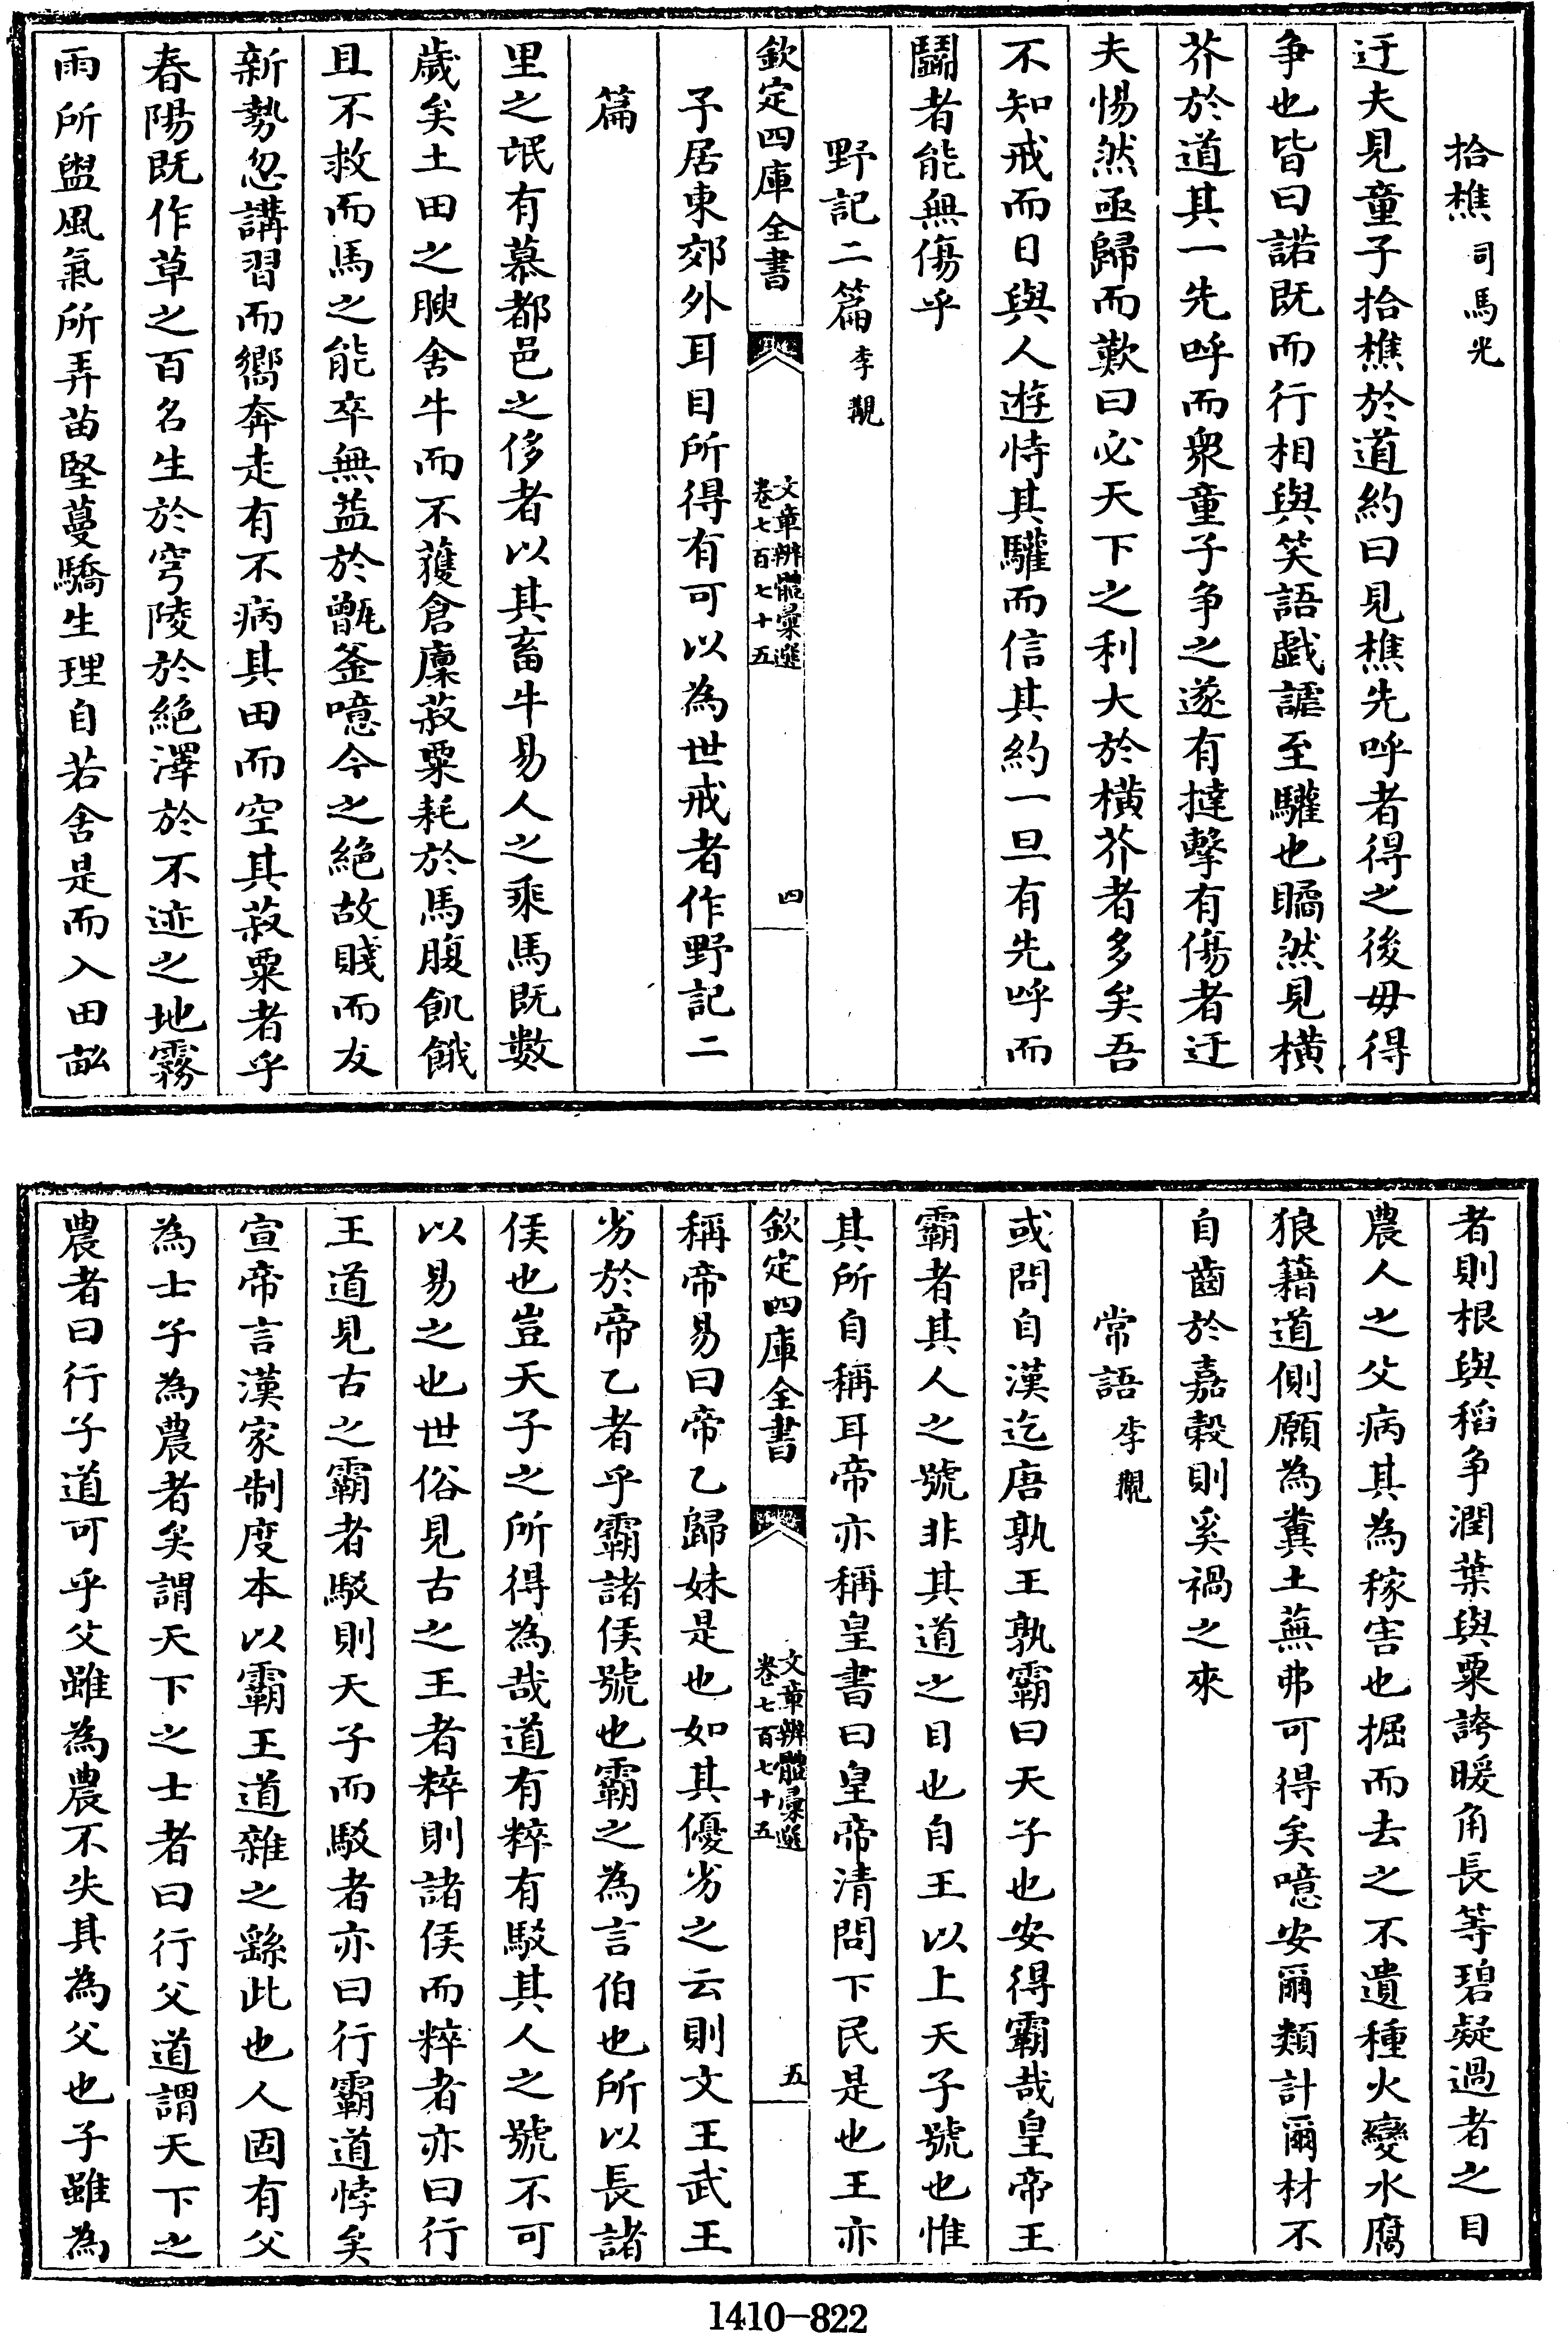 拾樵司馬光
迂夫見童子拾樵於道約曰見樵先呼者得之後毋得
争也皆曰諾既而行相與笑語戱謔至驩也瞲然見橫
芥於道其一先呼而衆童子争之遂有撻擊有傷者迂
夫惕然亟歸而歎曰必天下之利大於橫芥者多矣吾
不知戒而日與人遊恃其驩而信其約一旦有先呼而
鬭者能無傷乎
野記二篇李覯
欽定四庫全書
文章辨體彙選
卷七百七十五
四
子居東郊外耳目所得有可以為世戒者作野記二
篇
里之氓有慕都邑之侈者以其畜牛易人之乘馬既數
歲矣土田之腴舍牛而不獲倉廩菽粟耗於馬腹飢餓
且不救而馬之能卒無益於甑釜噫今之絶故賤而友
新勢忽講習而嚮奔走有不病其田而空其菽粟者乎
春陽既作草之百名生於穹陵於絶澤於不迹之地霧
雨所盥風氣所弄苗堅蔓驕生理自若舍是而入田畝
者則根與稻争潤葉與粟誇暖角長等碧疑過者之目
農人之父病其為稼害也掘而去之不遺種火變水腐
狼藉道側願為糞土蕪弗可得矣噫安爾類計爾材不
自齒於嘉穀則奚禍之來
常語李覯
或問自漢迄唐孰王孰霸曰天子也安得霸哉皇帝王
霸者其人之號非其道之目也自王以上天子號也惟
其所自稱耳帝亦稱皇書曰皇帝清問下民是也王亦
欽定四庫全書
文章辨體彙選
卷七百七十五
五
稱帝易曰帝乙歸妹是也如其優劣之云則文王武王
劣於帝乙者乎霸諸侯號也霸之為言伯也所以長諸
侯也豈天子之所得為哉道有粹有駁其人之號不可
以易之也世俗見古之王者粹則諸侯而粹者亦曰行
王道見古之霸者駁則天子而駁者亦曰行霸道悖矣
宣帝言漢家制度本以霸王道雜之繇此也人固有父
為士子為農者矣謂天下之士者曰行父道謂天下之
農者曰行子道可乎父雖為農不失其為父也子雖為
1410-822